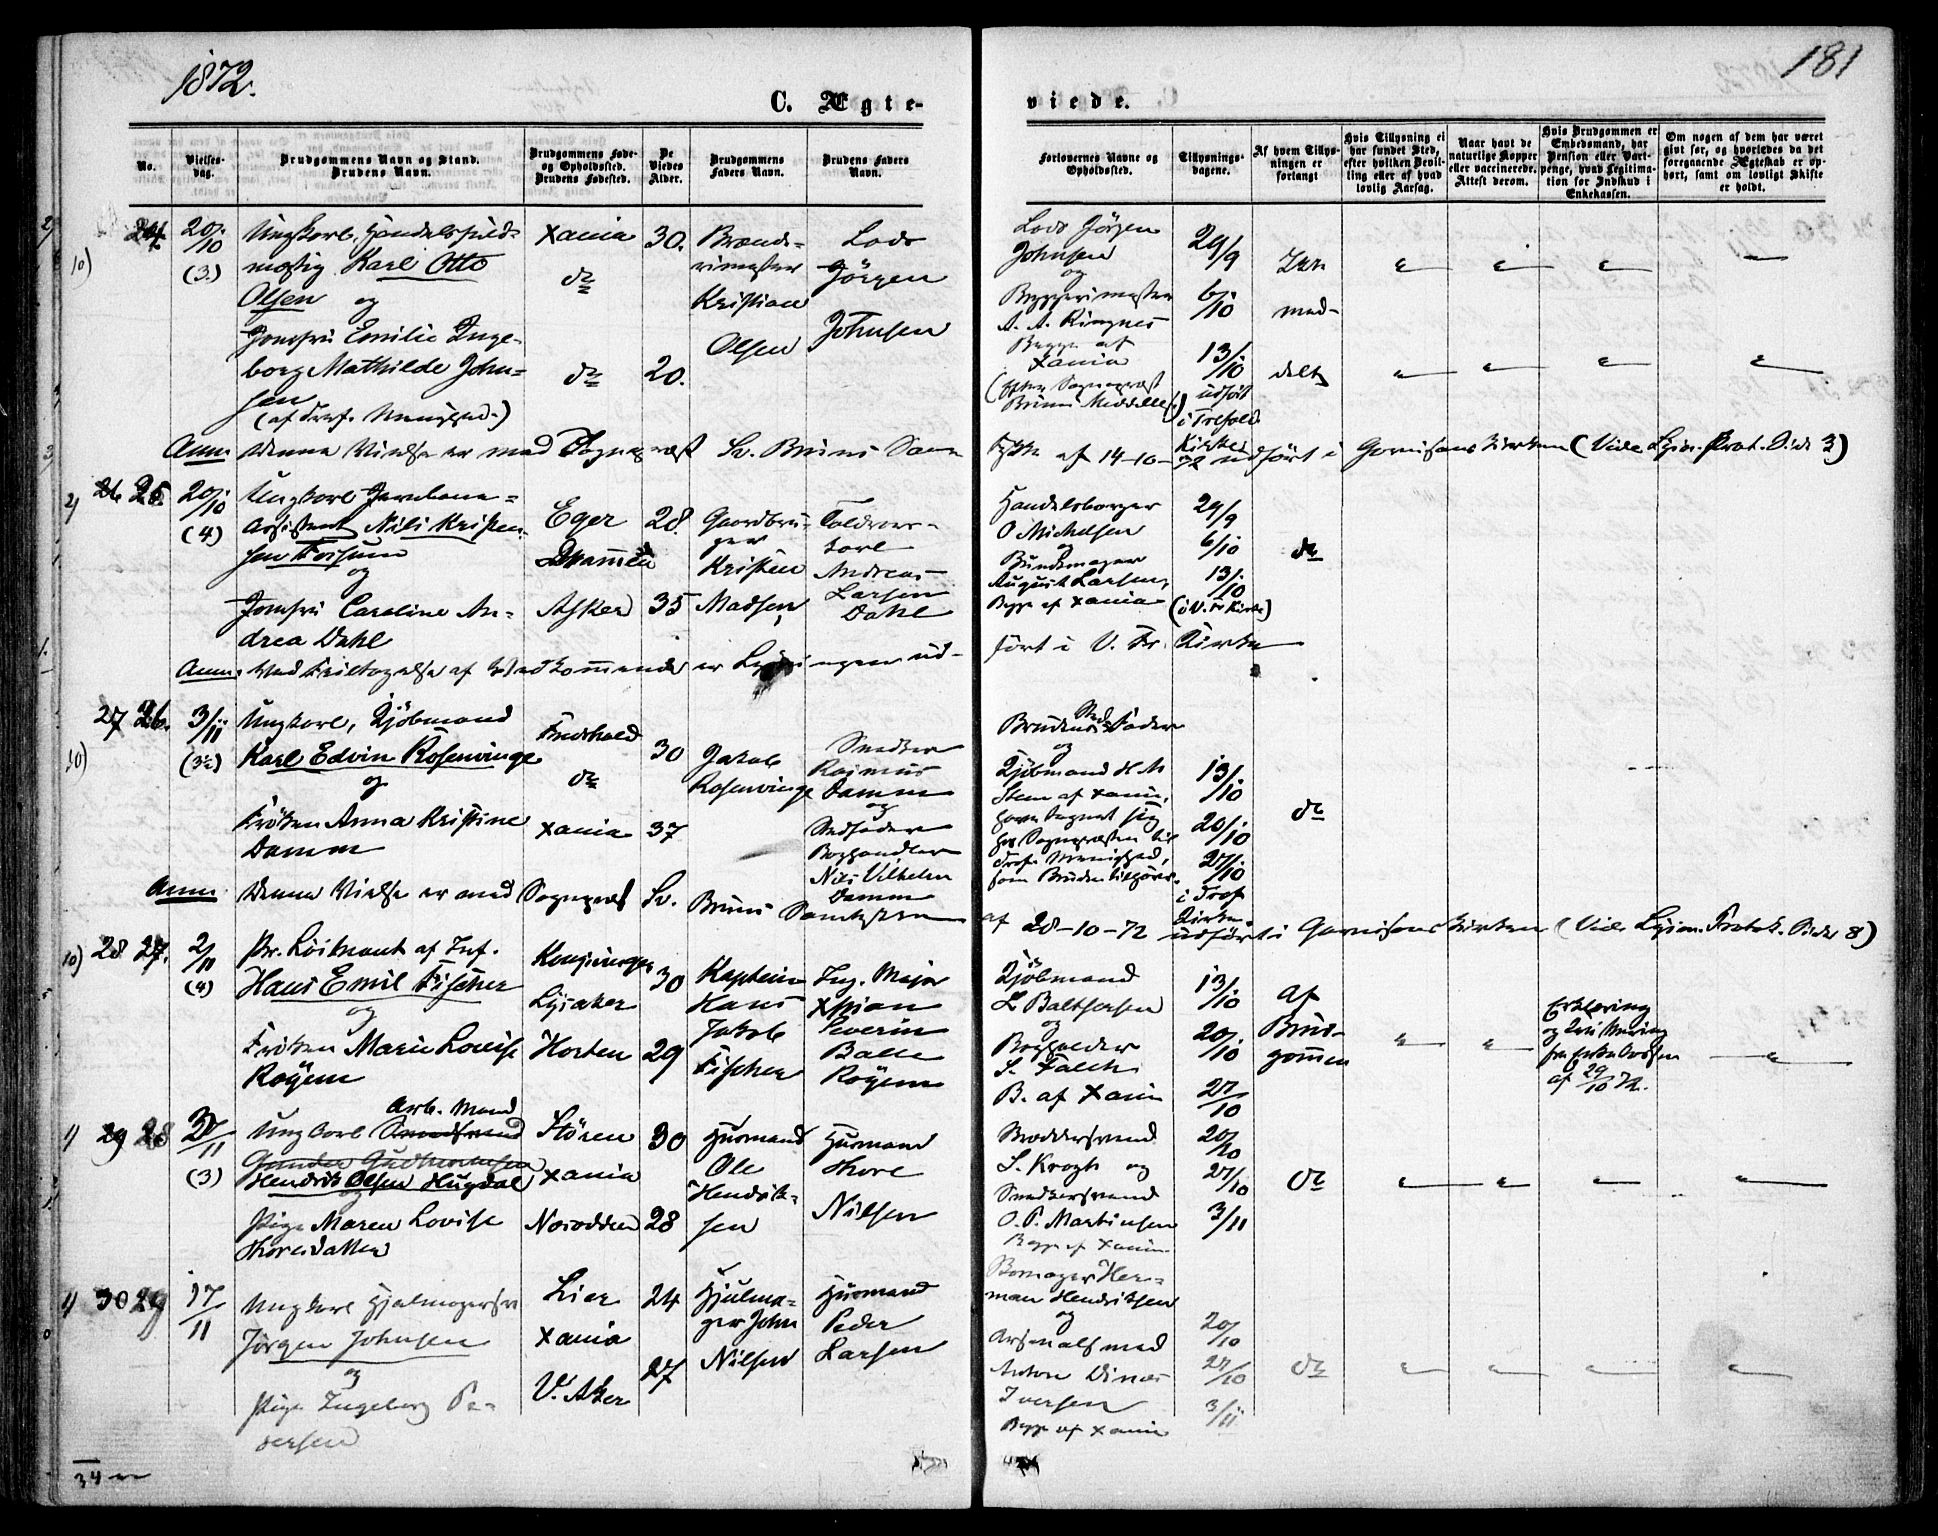 1872.
181
C. Ægte-
viede.
No.
Vielses-
dag.
Brudgommens Navn og Stand.
Brudens Navn.
Brudgommens Føde-
og Opholdssted.
Brudens Fødested.
De
Viedes
Alder.
Brudgommens
Faders Navn.
Brudens Faders
Navn.
Forlovernes Navne og
Opholdssted.
Tillysnings-
dagene.
Af hvem Tillys-
ningen er
forlangt
Hvis Tillysning ei
har fundet Sted,
efter hvilken Bevil-
ling eller af hvad
lovlig Aarsag.
Naar havt de
naturlige Kopper
eller vaccinerede.
Attest derom.
Hvis Brudgommen er
Embedsmand, har
Pension eller Vart-
penge, hvad Legitima-
tion for Indskud i
Enkekassen.
Om nogen af dem har været
givt før, og hvorledes da det
foregaaende Ægteskab er op-
hørt, samt om lovligt Skifte
er holdt.
24.
20/10
(3)
Ungkarl, Handelsfuld-
mægtig Karl Otto
Olsen og
Jomfru Emilie Inge-
borg Mathilde John-
sen
Xania
do
do
30.
20.
Kristian
Olsen
Lods
Jørgen
Johnsen
Lods Jørgen
Johnsen
og
A. A. Ringnes
Begge af
Xania
29/9
6/10
13/10
udført
i Trefold.
Kirke
Anm. Denne Vielse er med Sognepræst Sv. Bruns Sam-
tykke af 14-10-72 udført i Garnisonskirken (Vide Lysn. Prot. Side 3)
26 25.
20/10
(4)
Ungkarl Jernbane-
Assistent Nils Kristen-
sen Fossum
og
Jomfru Caroline An-
drea Dahl
Eger
Drammen
Asker
28.
35
Gaardbru-
ger
Kristen
Madsen
Andreas
Larsen
Dahl
Handelsborger
O Michelsen
og
Bundtmager
August Larsen,
Begge af Xania
29/9
6/10
13/10
(i V. Fr Kirke)
do
Anm. Med Tilladelse af Vedkommende er Lysningen ud-
ført i V. Fr. Kirke
27 26.
3/11
(3½)
Ungkarl, Kjøbmand
Karl Edvin Rosenvinge
og
Frøken Anna Kristine
Damm
Fredshald
do
Xania
30
37
Jakob
Rosenvinge
Snedker
Rasmus
Damm
og
Stedfader
Boghandler
Nils Vilhelm
Damm
Brudens Stedfader
og
Kjøbmand H. M
Steen af Xania,
13/10
20/10
27/10
i Tref
Kirke
do
Anm. Denne Vielse er med Sognepræst Sv. Bruns Samtykke
af 28-10-72 udført i Garnisonskirken (Vide Lysn. Protok. Side 8)
28 27.
2/11
(4)
Pr. Löitnant af Inf.
Hans Emil Fischer
og
Frøken Marie Lovise
Rögem
Kongsvinger
Lysaker
Horten
30
29
Kaptein
Hans
Jakob
Fischer
Ing. Major
Xstian
Severin
Balle
Rögem
Kjøbmand
L Baltsersen
og
Bogholder
S. Falch
B. af Xania
13/10
20/10
27/10
Af
Brud-
gommen
Erklæring
og Kvittering
fra Enkekassen
af 29/10 72.
29 28
3/11
(3)
Arb. Mand
Ungkarl
Hendrik Olsen Hugdal
og
Pige Maren Lovise
Thoresdatter
Støren
Xania
Nesodden
30
28
Husmand
Ole
Hendrik-
sen
Husmand
Thore
Nilsen
S. Krogh og
Snedkersvend
O. P. Martinsen
Begge af Xania
20/10
27/10
3/11
do
30 29
17/11
Ungkarl Hjulmagersv.
Jørgen Johnsen
og
Pige Ingeborg Pe-
dersen
Lier
Xania
V. Aker
24
27
Hjulma-
ger John
Nilsen
Husmand
Peder
Larsen
man Hendriksen
og
Anton Dines
Iversen
Begge af Xania
20/10
27/10
3/11
do
34